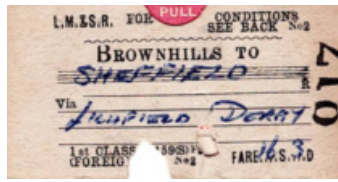 PULL
L.M.&S.R. FOR CONDITIONS
SEE BACK No2
BROWNHILLS TO
SHEFFIELD
R
Via
LICHFIELD DERBY
1st CLASS
(FOREIGN No2 FARE 16 S. 3 D
017